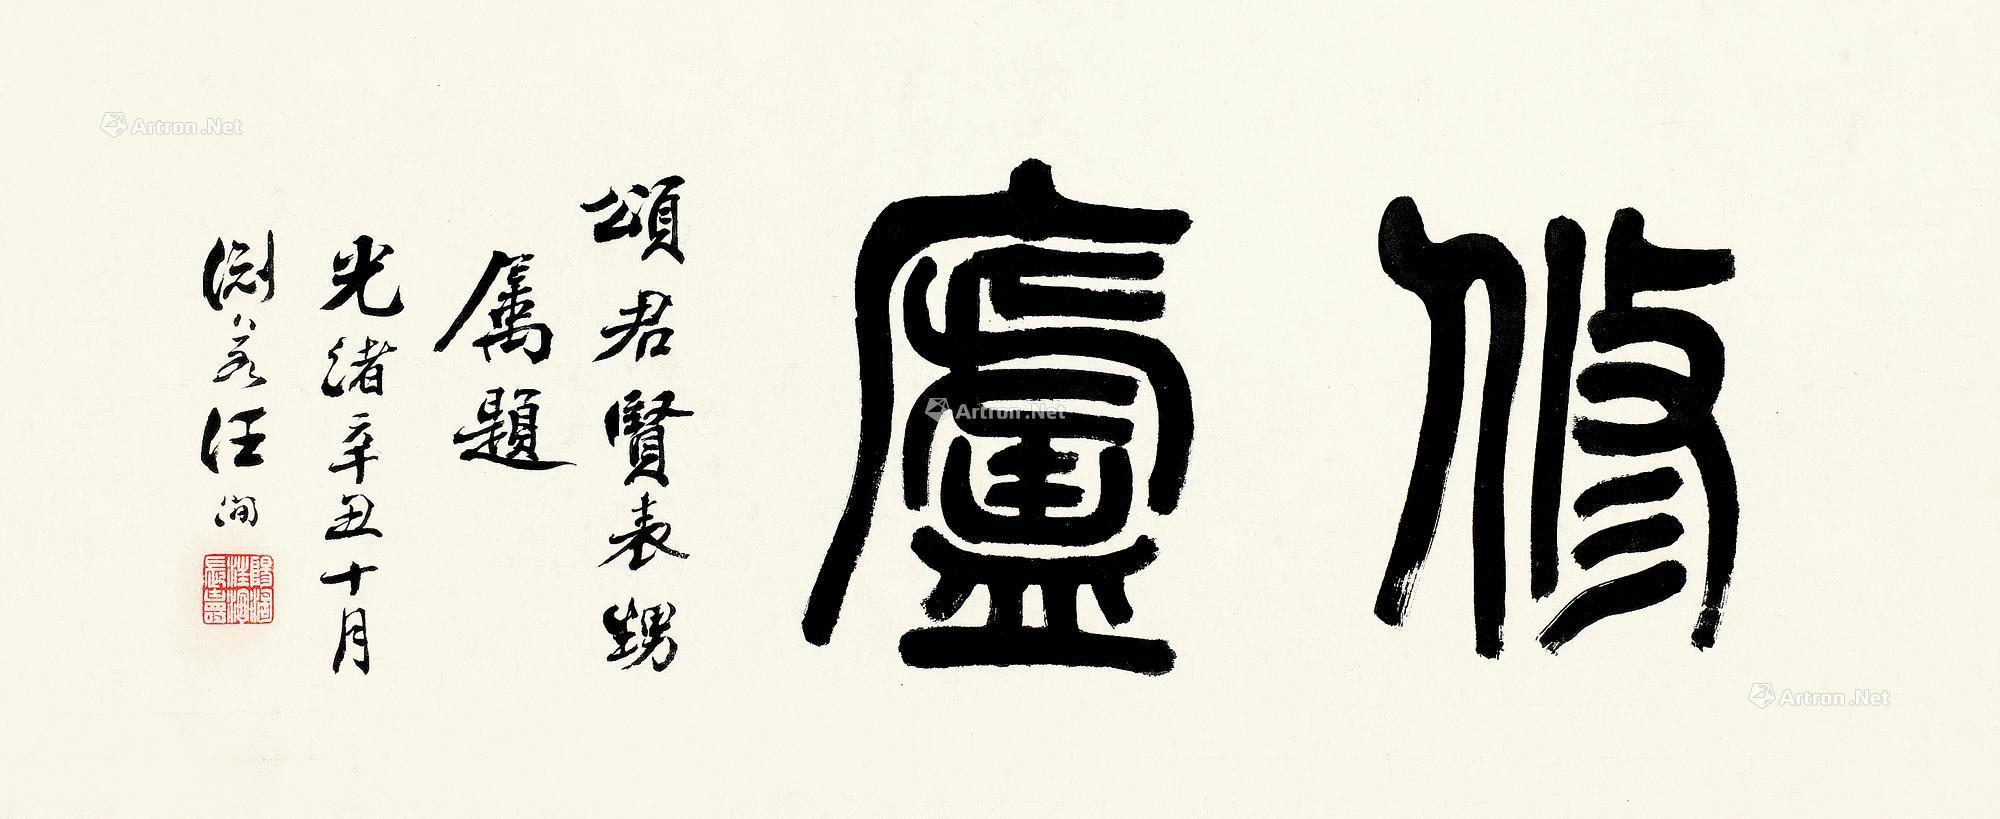 修廬
頌君賢表甥
屬題
光緒辛丑十月
淵若汪洵
陽湖汪洵長壽
Artron.Net
Artron.Net
Artron.Net